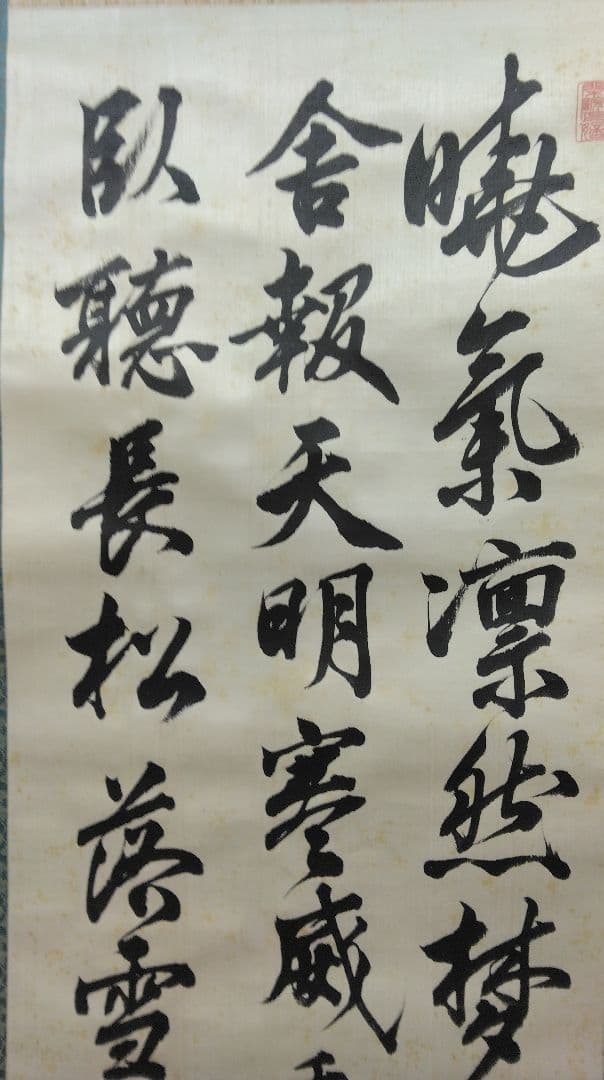 曉氣凛然梦
舎報天明寒威
臥聽長松落雪